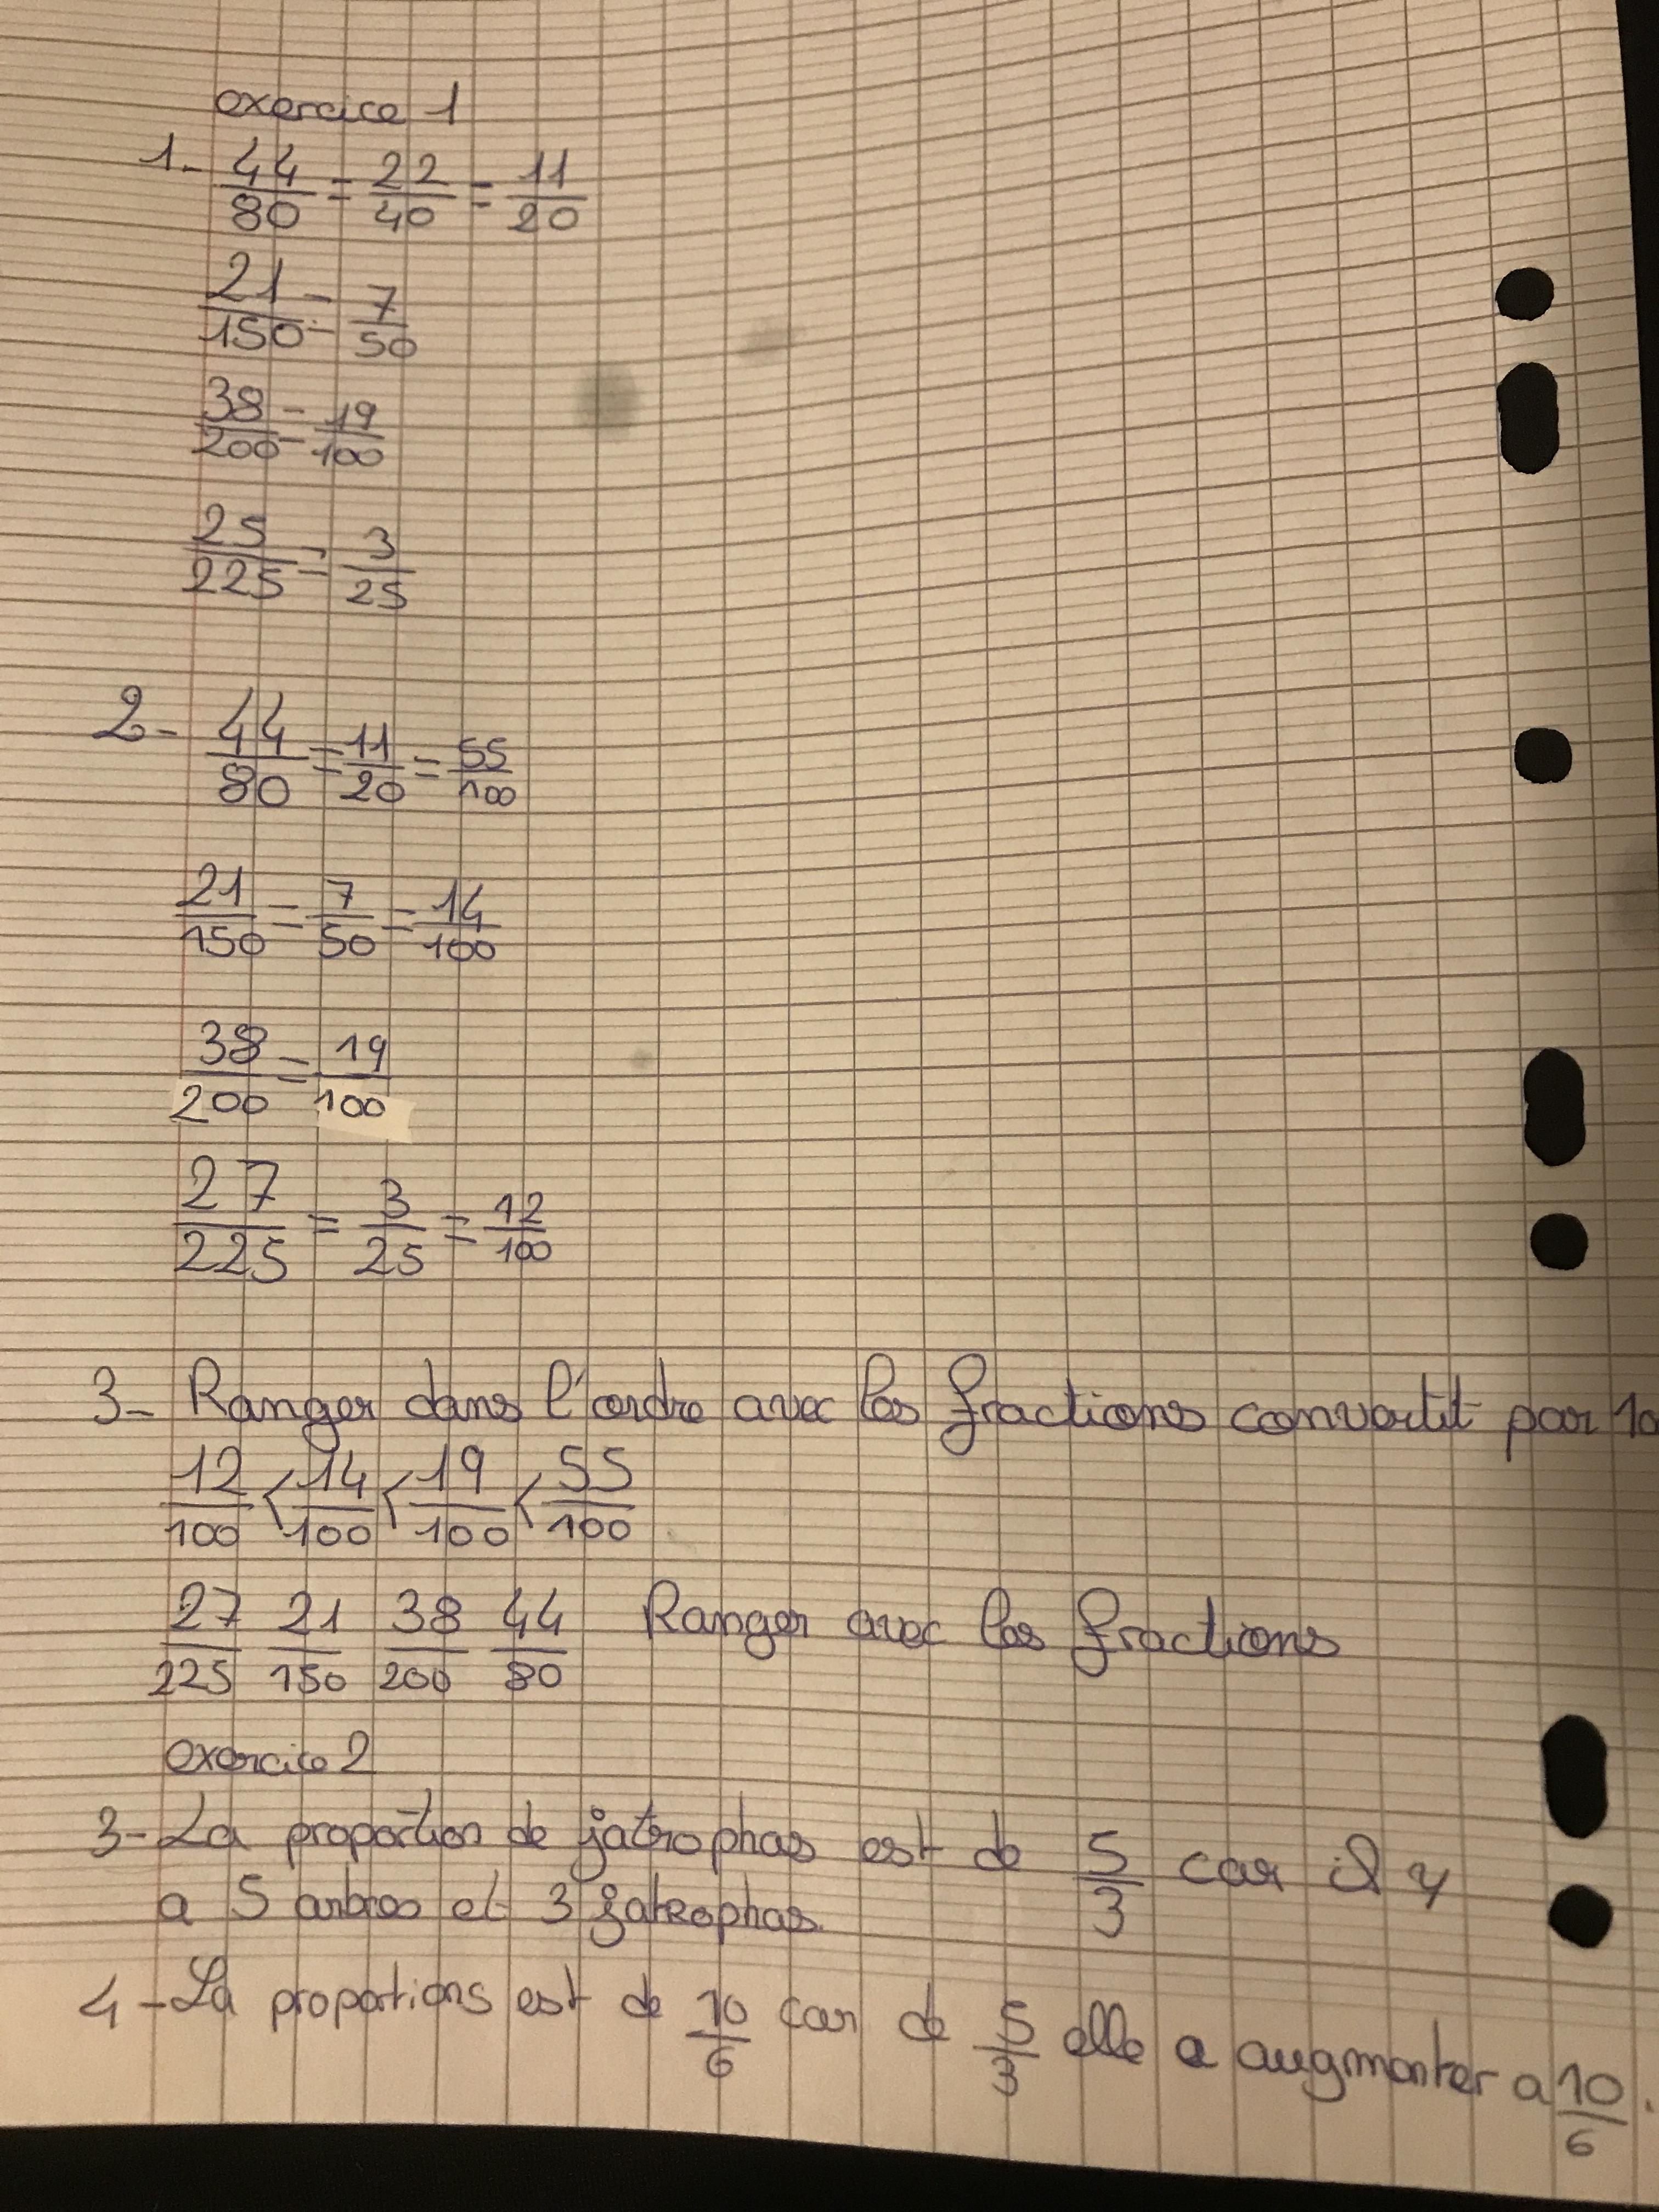 exercice 1
1- 44/80 = 22/40 = 11/20
21/150 = 7/50
38/200 = 19/100
25/225 = 3/25
2- 44/80 = 11/20 = 55/100
21/150 = 7/50 = 14/100
38/200 = 19/100
27/225 = 3/25 = 12/100
3- Ranger dans l'ordre avec les fractions convertit par 10
12/100 < 14/100 < 19/100 < 55/100
27/225 21/150 38/200 44/80 Ranger avec les fractions
exercice 2
3- La proportion de jatrophas est de 5/3 car il y
a 5 arbres et 3 jatrophas.
4- La proportions est de 10/6 car de 5/3 elle a augmenter a 10/6.